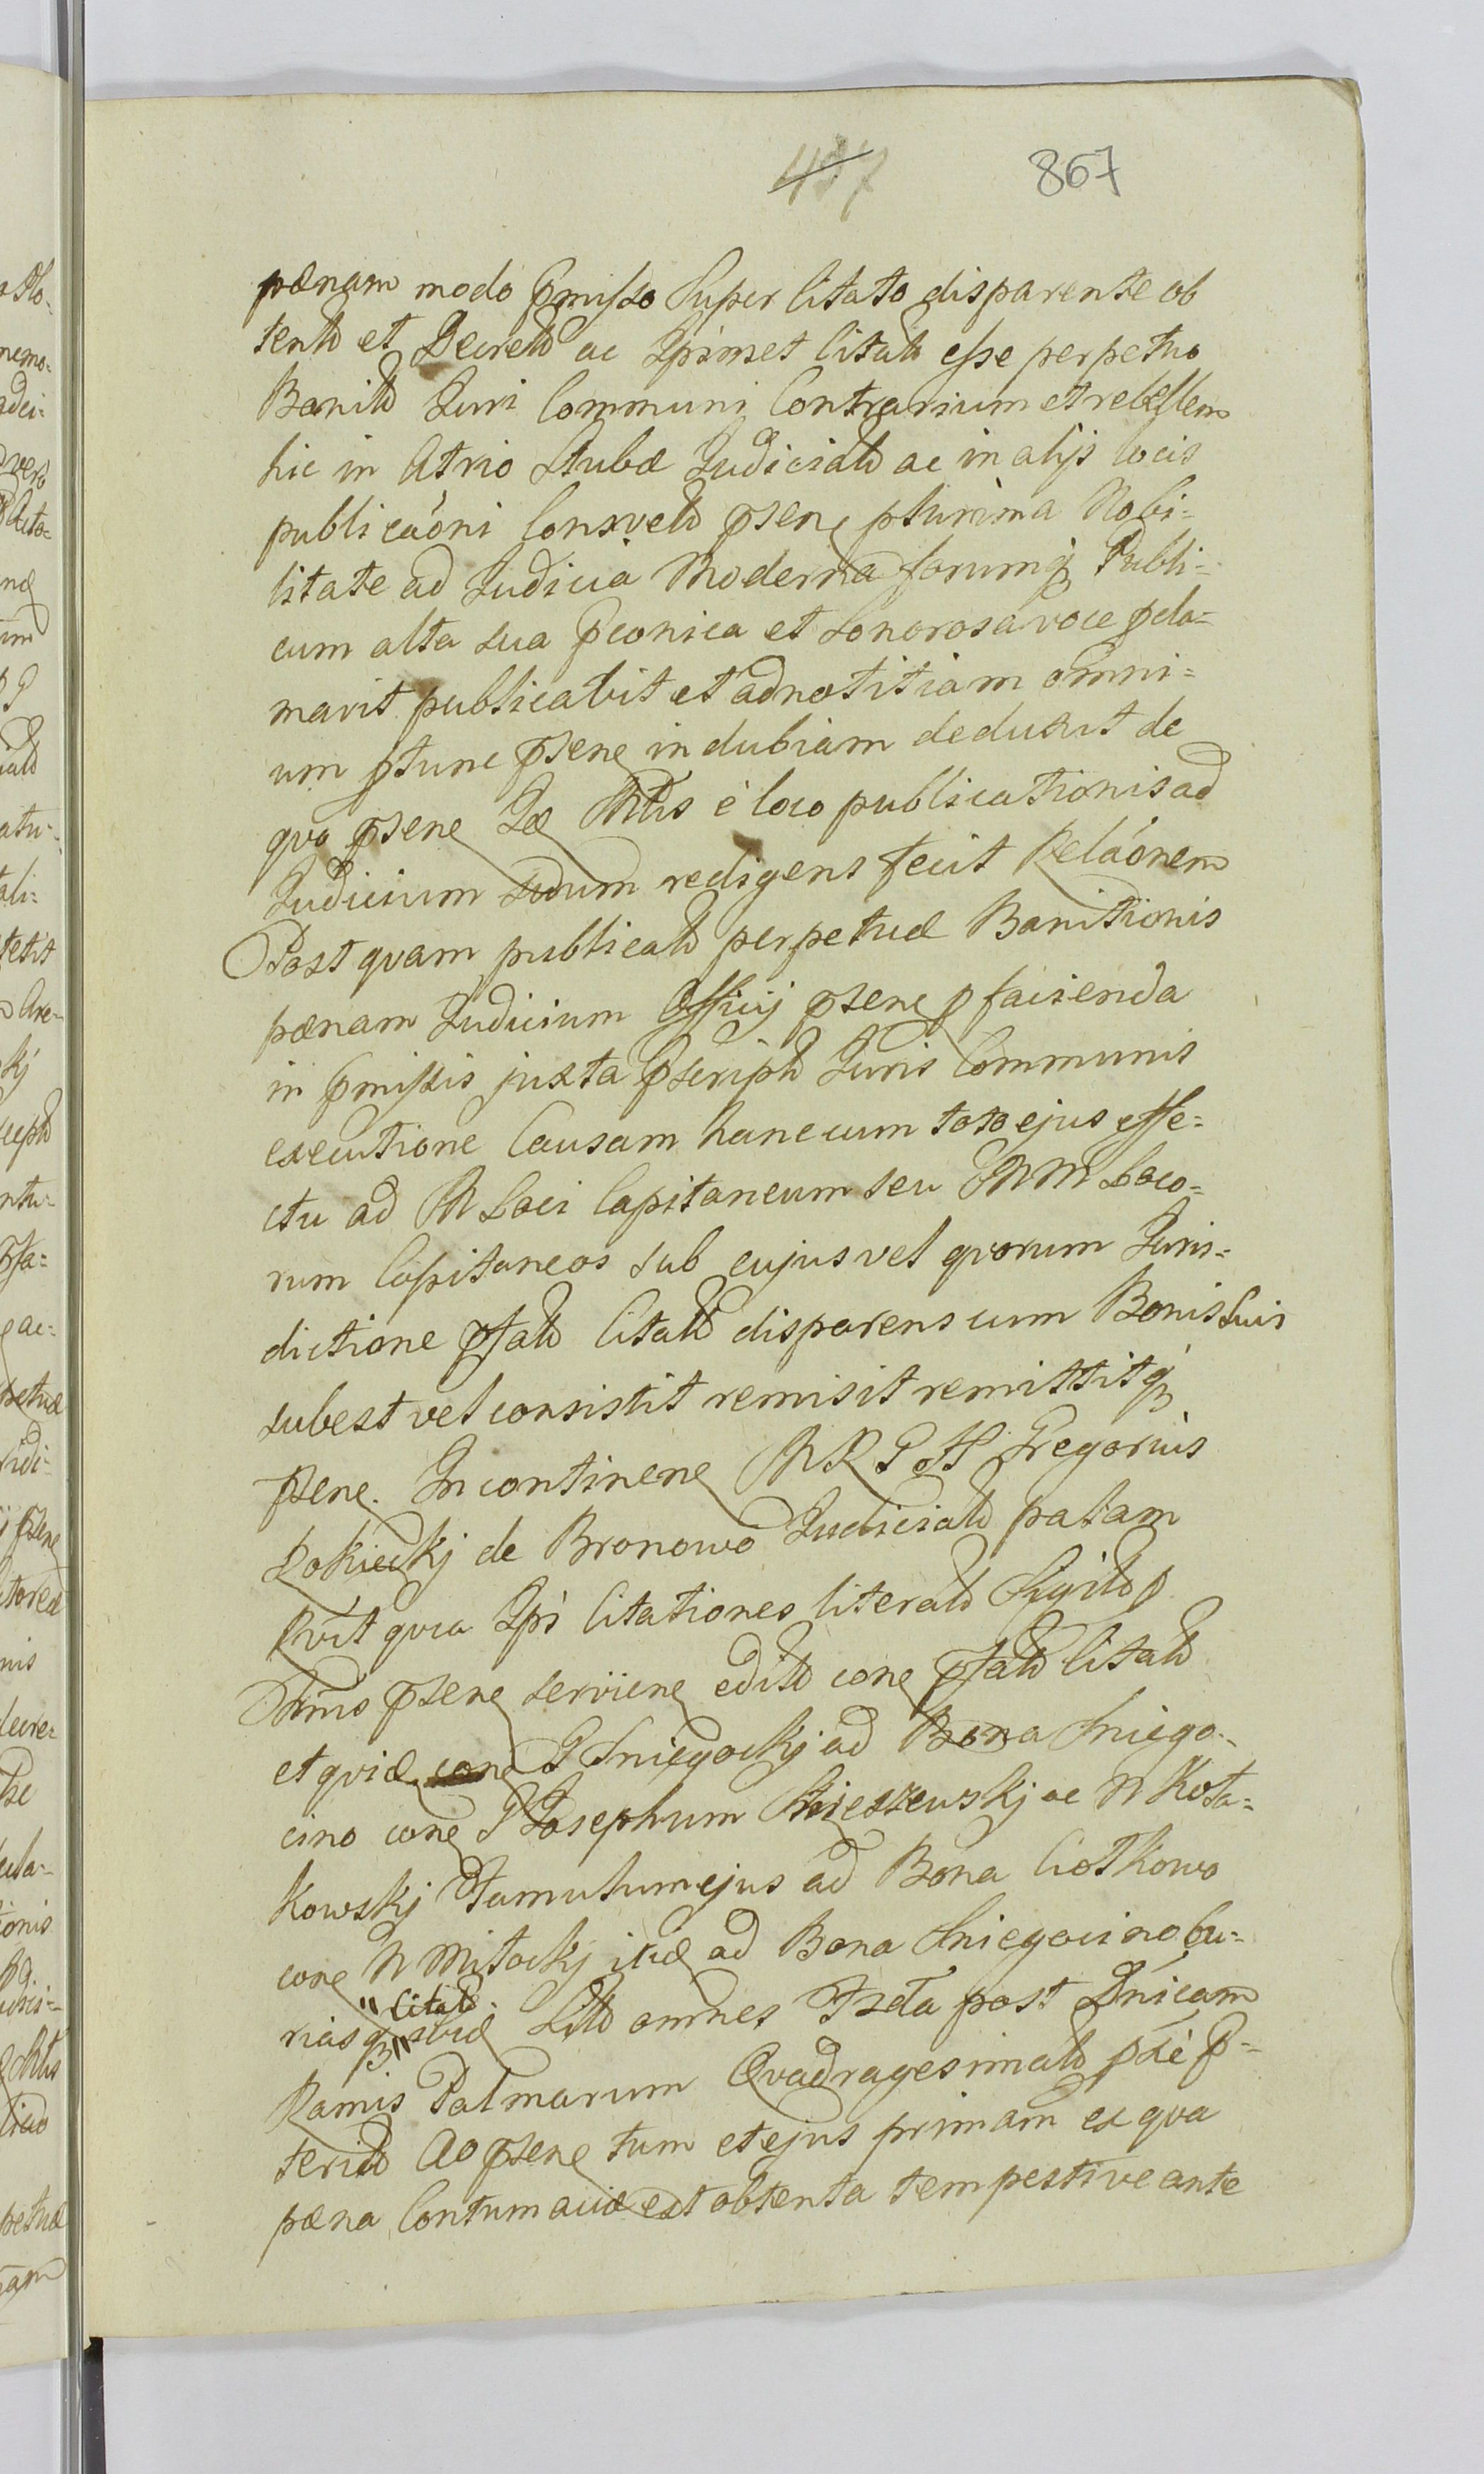 437 867
pænam modo pmisso super Citato disparente ob
tent et Decret ac Ipsimet Citat esse perpetuo
Banit Juri Communi Contrarium et rebellem
hic in Atrio Stubæ Judicial ac in alijs locis
publicaoni Consvet psen plurima Nobi=
litate ad Judicia Moderna forumq Publi=
cum alta sua pconica et Sonorosa voce pcla=
mavit publicavit et ad notitiam omni=
um ptunc psen indubiam deduxit de
quo psen Idẽ Mtlis e loco publicationis ad
Judicium redigens fecit Relaonem
Post quam publicat perpetuæ Banitionis
pænam Judicium Officij psen p facienda
in pmissis juxta pscript Juris Communis
executione Causam hanc cum toto ejus effe=
ctu ad M Loci Capitaneum seu MM Loco=
rum Capitaneos sub cujus vel quorum Juris=
dictione pfat Citat disparens cum Bonis suis
subest vel consistit remisit remittitq
psen. In continen M R P H Gregorius
Rokickj de Bronowo Judicial palam
Rvit quia Ipi Citationes literal Sigil p
Tmo psen servien edit con pfat Citat
et quid con P Sniegockj ad Bona Sniego=
cino con P Josephum Mieszewskj ac N Kota=
kowskj Famulum ejus ad Bona Ciotkowo
con N Mitockj itid ad Bona Sniegocino Cu=
riasq "Citat" ibid Litt omnes Fda post Dnicam
Ramis Palmarum Quadragesimal pxe p=
terit Ao psen tum et ejus primam ex qua
pæna Contumaciæ est obtenta tempestive ante